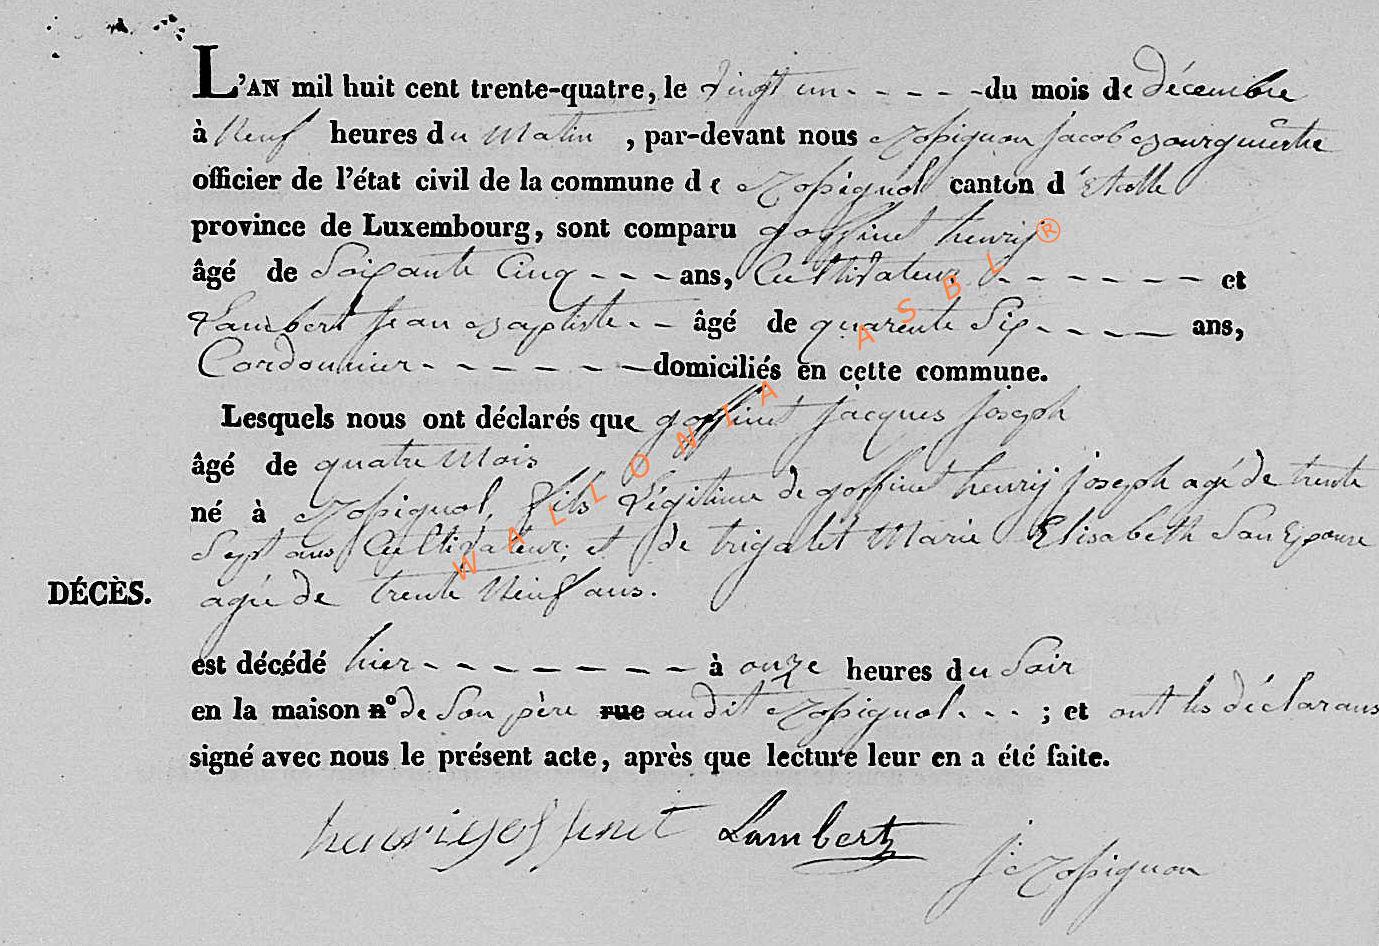 L'AN mil huit cent trente-quatre, le vingt un - - - - - du mois de décembre
à Neuf heures du Matin , par-devant nous Rossignon Jacob Bourguemètre
officier de l'état civil de la commune de Rossignol canton d'Etalle
province de Luxembourg, sont comparu goffinet henrij
âgé de Soixante Cinq - - - ans, Cultivateur - - - - - - - et
Lambert Jean Baptiste - - âgé de quarente Six - - - - ans,
Cordonnier - - - - - - - domiciliés en cette commune.
Lesquels nous ont déclarés que goffinet Jacques Joseph
âgé de quatre Mois
né à Rossignol, fils Légitime de goffinet henrij Joseph agé de trente
Sept ans Cultivateur, et de trigalet Marie Elisabeth Son Epouse
DÉCÈS. agée de trente Neuf ans.
est décédé hier - - - - - - - à onze heures du Soir
en la maison n° de Son père rue audit Rossignol - - - ; et ont les déclarans
signé avec nous le présent acte, après que lecture leur en a été faite.
henrij goffinet Lambert J: Rossignon
WALLONIA ASBL ®